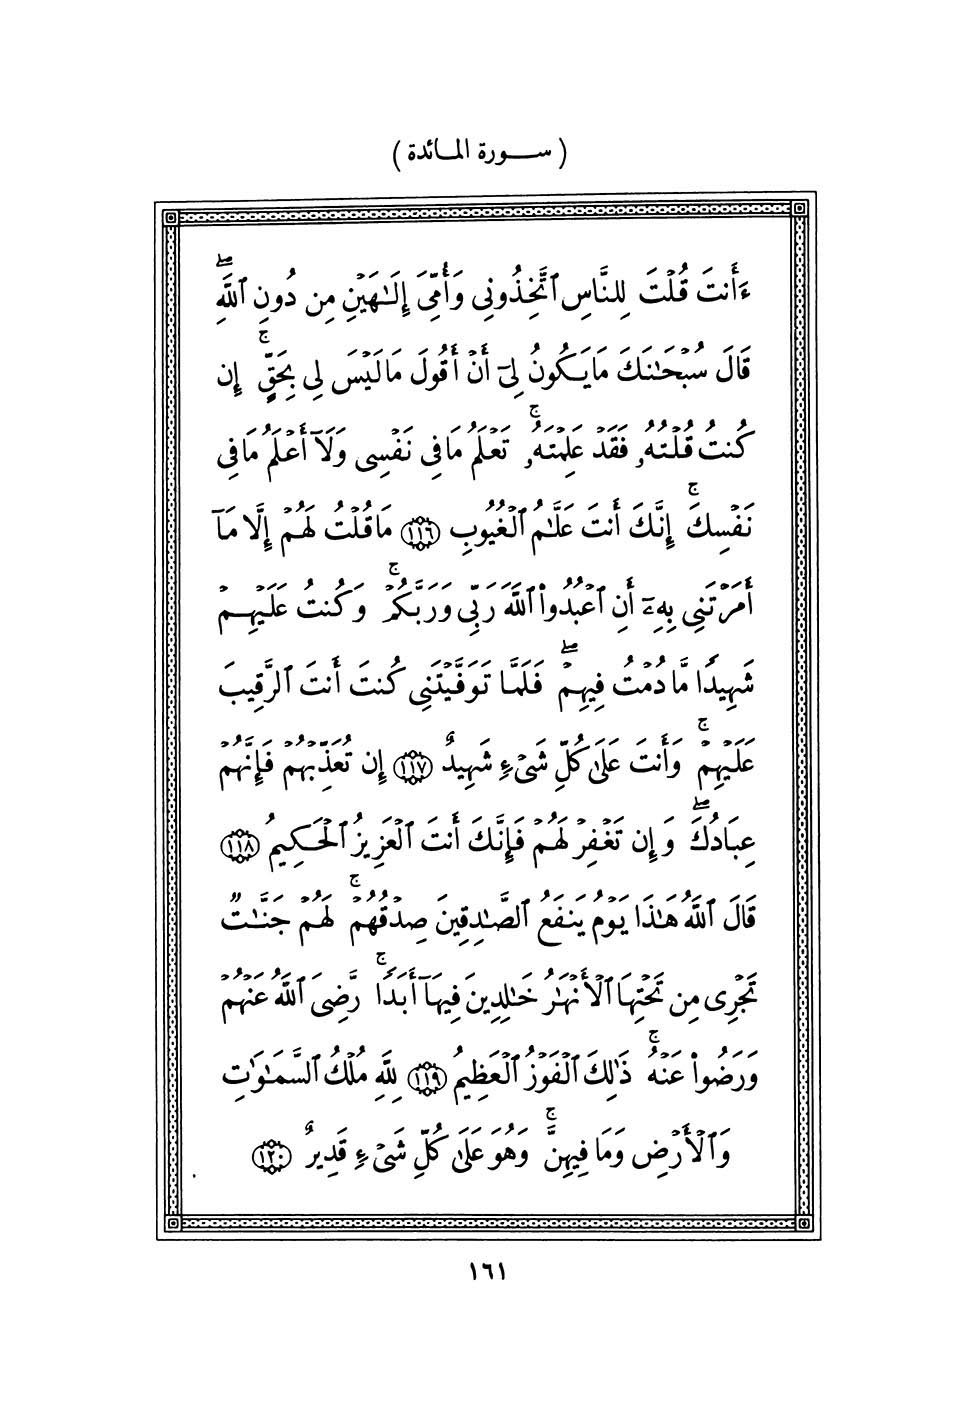 ( ســـورة المـائدة )
ءَأَنتَ قُلۡتَ لِلنَّاسِ ٱتَّخِذُونِى وَأُمِّىَ إِلَٰهَيۡنِ مِن دُونِ ٱللَّهِۖ
قَالَ سُبۡحَٰنَكَ مَا يَكُونُ لِىٓ أَنۡ أَقُولَ مَا لَيۡسَ لِى بِحَقٍّۚ إِن
كُنتُ قُلۡتُهُۥ فَقَدۡ عَلِمۡتَهُۥۚ تَعۡلَمُ مَا فِى نَفۡسِى وَلَآ أَعۡلَمُ مَا فِى
نَفۡسِكَۚ إِنَّكَ أَنتَ عَلَّٰمُ ٱلۡغُيُوبِ ١١٦ مَا قُلۡتُ لَهُمۡ إِلَّا مَآ
أَمَرۡتَنِى بِهِۦٓ أَنِ ٱعۡبُدُواْ ٱللَّهَ رَبِّى وَرَبَّكُمۡۚ وَكُنتُ عَلَيۡهِمۡ
شَهِيدًا مَّا دُمۡتُ فِيهِمۡۖ فَلَمَّا تَوَفَّيۡتَنِى كُنتَ أَنتَ ٱلرَّقِيبَ
عَلَيۡهِمۡۚ وَأَنتَ عَلَىٰ كُلِّ شَىۡءٍ شَهِيدٌ ١١٧ إِن تُعَذِّبۡهُمۡ فَإِنَّهُمۡ
عِبَادُكَۖ وَإِن تَغۡفِرۡ لَهُمۡ فَإِنَّكَ أَنتَ ٱلۡعَزِيزُ ٱلۡحَكِيمُ ١١٨
قَالَ ٱللَّهُ هَٰذَا يَوۡمُ يَنفَعُ ٱلصَّٰدِقِينَ صِدۡقُهُمۡۚ لَهُمۡ جَنَّٰتٌ
تَجۡرِى مِن تَحۡتِهَا ٱلۡأَنۡهَٰرُ خَٰلِدِينَ فِيهَآ أَبَدًاۚ رَّضِىَ ٱللَّهُ عَنۡهُمۡ
وَرَضُواْ عَنۡهُۚ ذَٰلِكَ ٱلۡفَوۡزُ ٱلۡعَظِيمُ ١١٩ لِلَّهِ مُلۡكُ ٱلسَّمَٰوَٰتِ
وَٱلۡأَرۡضِ وَمَا فِيهِنَّۚ وَهُوَ عَلَىٰ كُلِّ شَىۡءٍ قَدِيرٌ ١٢٠
١٦١